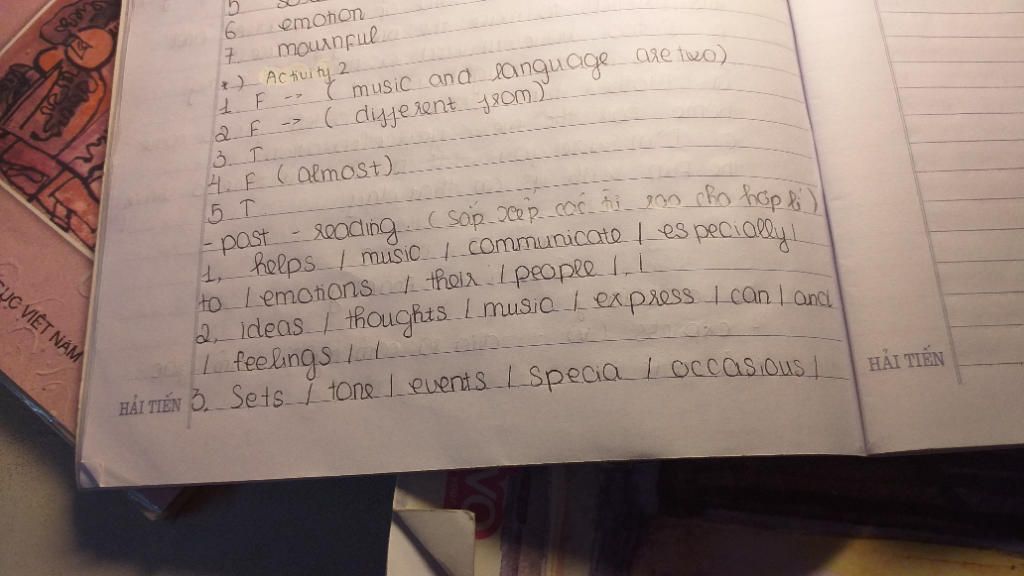 5
6 emotion
7 mournful
*) Activity 2
1 F -> ( music and language are two)
2 F -> ( different from)
3 T
4. F ( almost)
5 T
- post - reading. (sắp xếp các từ sao cho hợp lí)
1, helps / music / communicate / especially /
to / emotions / their / people / . /
2, ideas / thoughts / music / express / can / and
/ feelings / . /
3. Sets / tone / events / specia / occasious /
HẢI TIẾN
HẢI TIẾN
ỤC VIỆT NAM